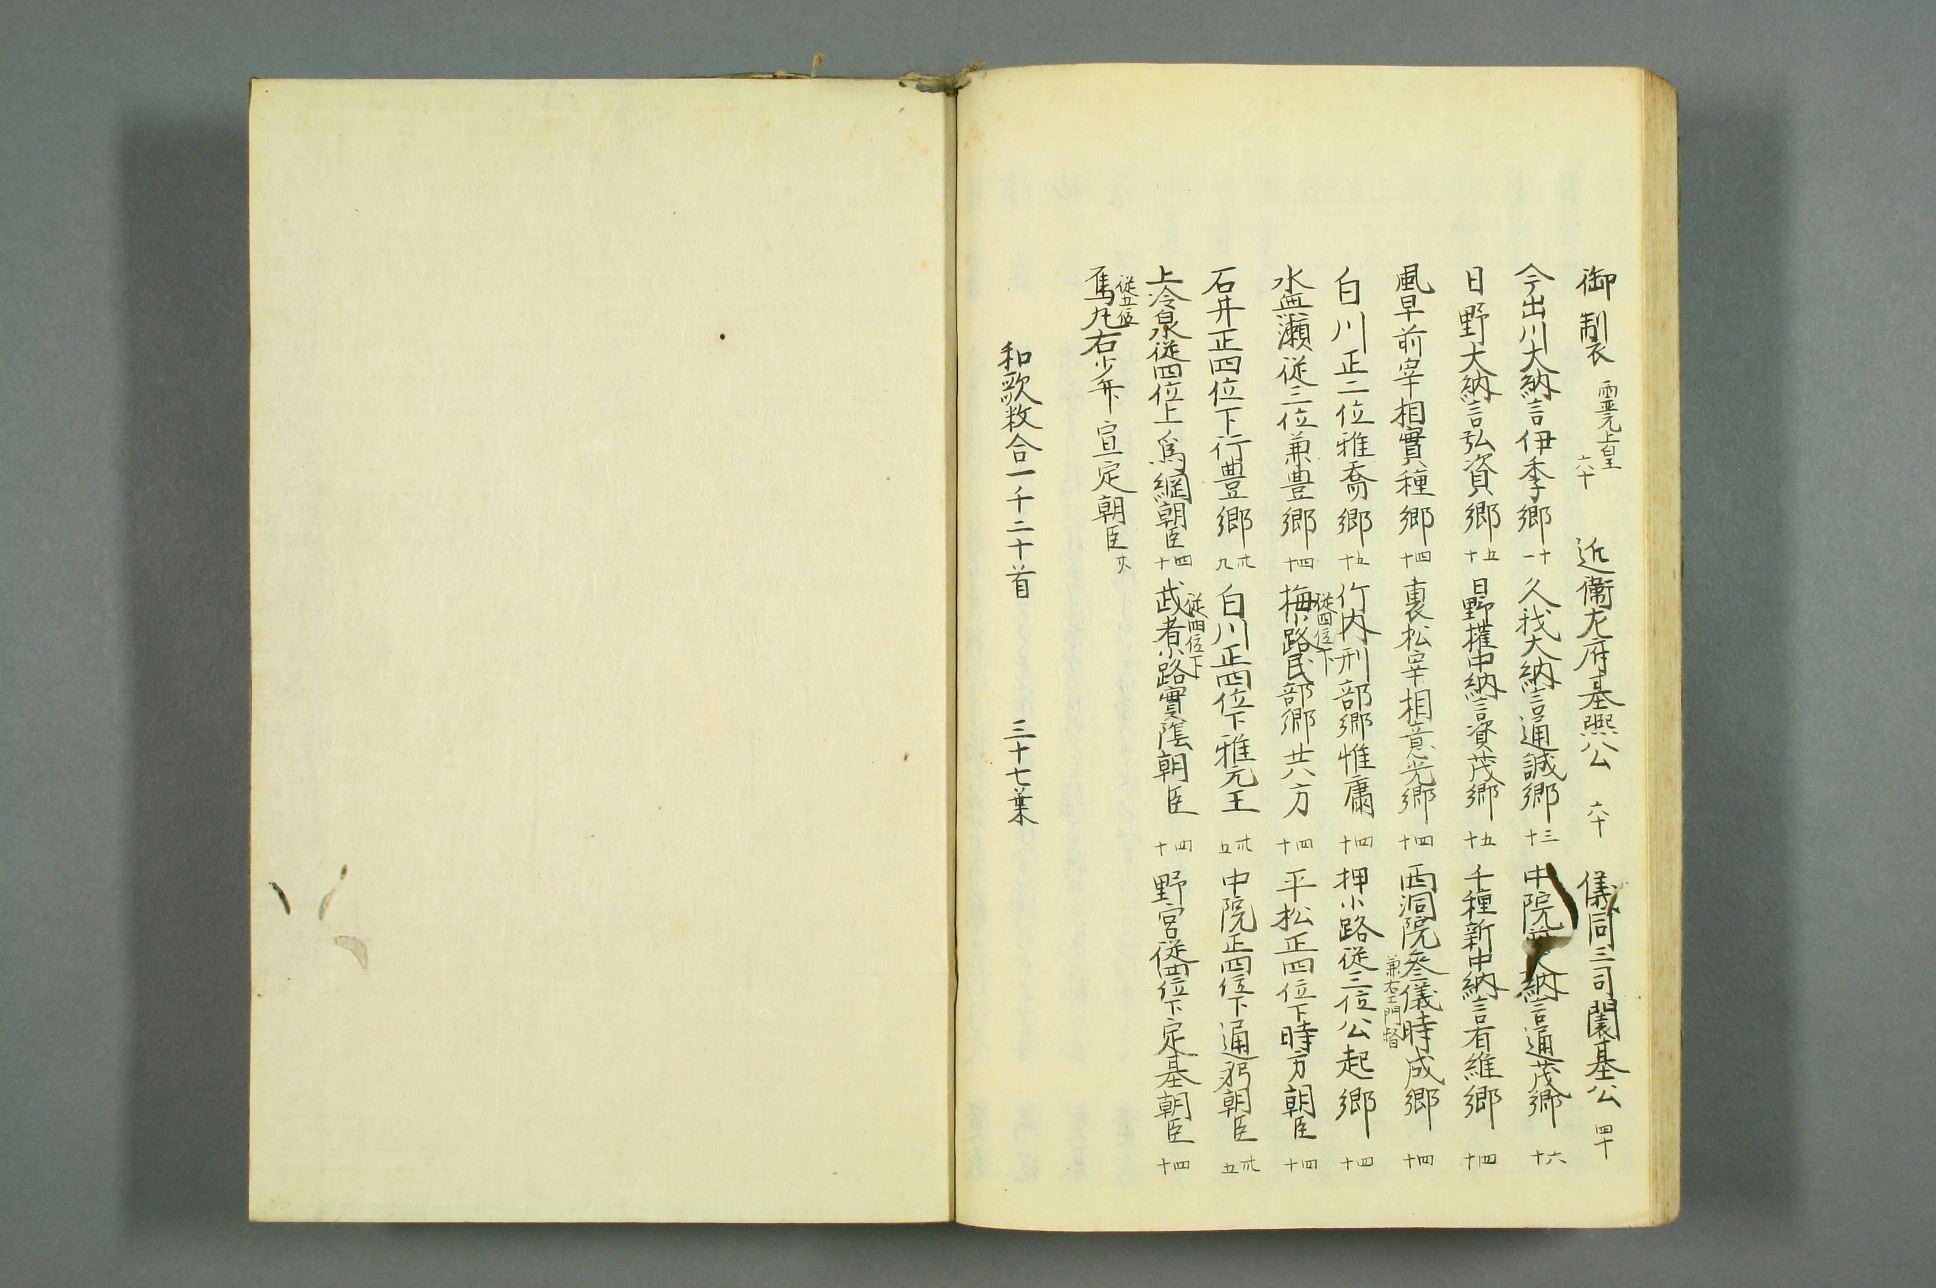 御製 霊元上皇 六十 近衛左府基熈公 六十 儀同三司 基公 四十
今出川大納言伊季卿 十一 久我大納言通誠卿 十三 中院 大納言通茂卿 十六
日野大納言弘資卿 五十 日野権中納言資茂卿 五十 千種新中納言有維卿 四十
風早前宰相實種卿 四十 裏松宰相意光卿 四十 西洞院参儀時成卿 四十
兼右エ門督
白川正二位雅喬卿 五十 竹内刑部卿惟庸 四十 押小路従三位公起卿 四十
従四位下
水無瀬従二位兼豊卿 四十 梅小路民部卿共方 四十 平松正四位下時方朝臣 四十
石井正四位下行豊卿 卅九 白川正四位下雅元王 卅五 中院正四位下通躬朝臣 卅五
従四位下
上冷泉従四位上為綱朝臣 四十 武者小路實蔭朝臣 四十 野宮従四位下定基朝臣 四十
従五位
烏丸右少弁宣定朝臣
和歌数合一千二十首 三十七葉